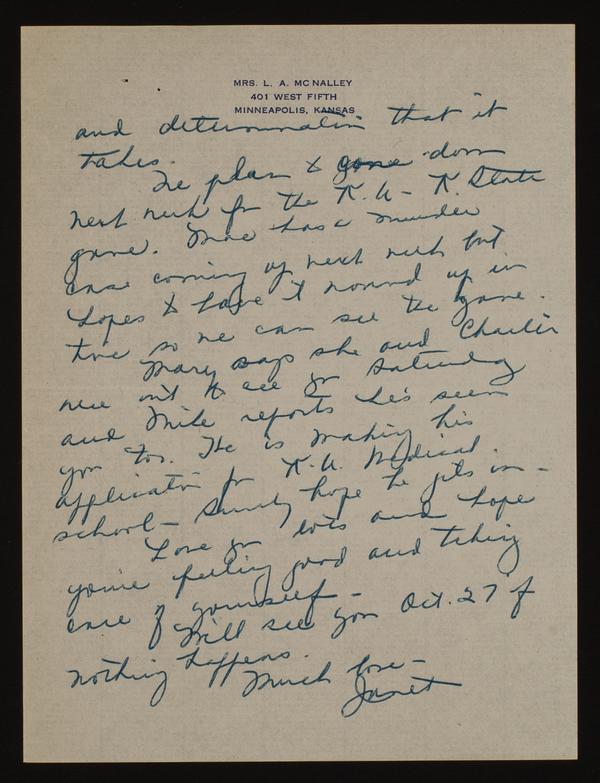 MRS. L. A. MCNALLEY
401 WEST FIFTH
MINNEAPOLIS, KANSAS
and determination that it
takes.
We plan to gone down
next week for the K.U - K. State
game. Mac has a murder
case coming up next week but
hopes to have it wound up in
time so we can see the game.
Mary says she and Charlie
were out to see you Saturday
and Mike reports he's seen
you too. He is making his
application for K.U. Medical
school - Surely hope he gets in -
Love you lots and hope
you're feeling good and taking
care of yourself -
Will see you Oct. 27 if
nothing happens.
Much love -
Janet